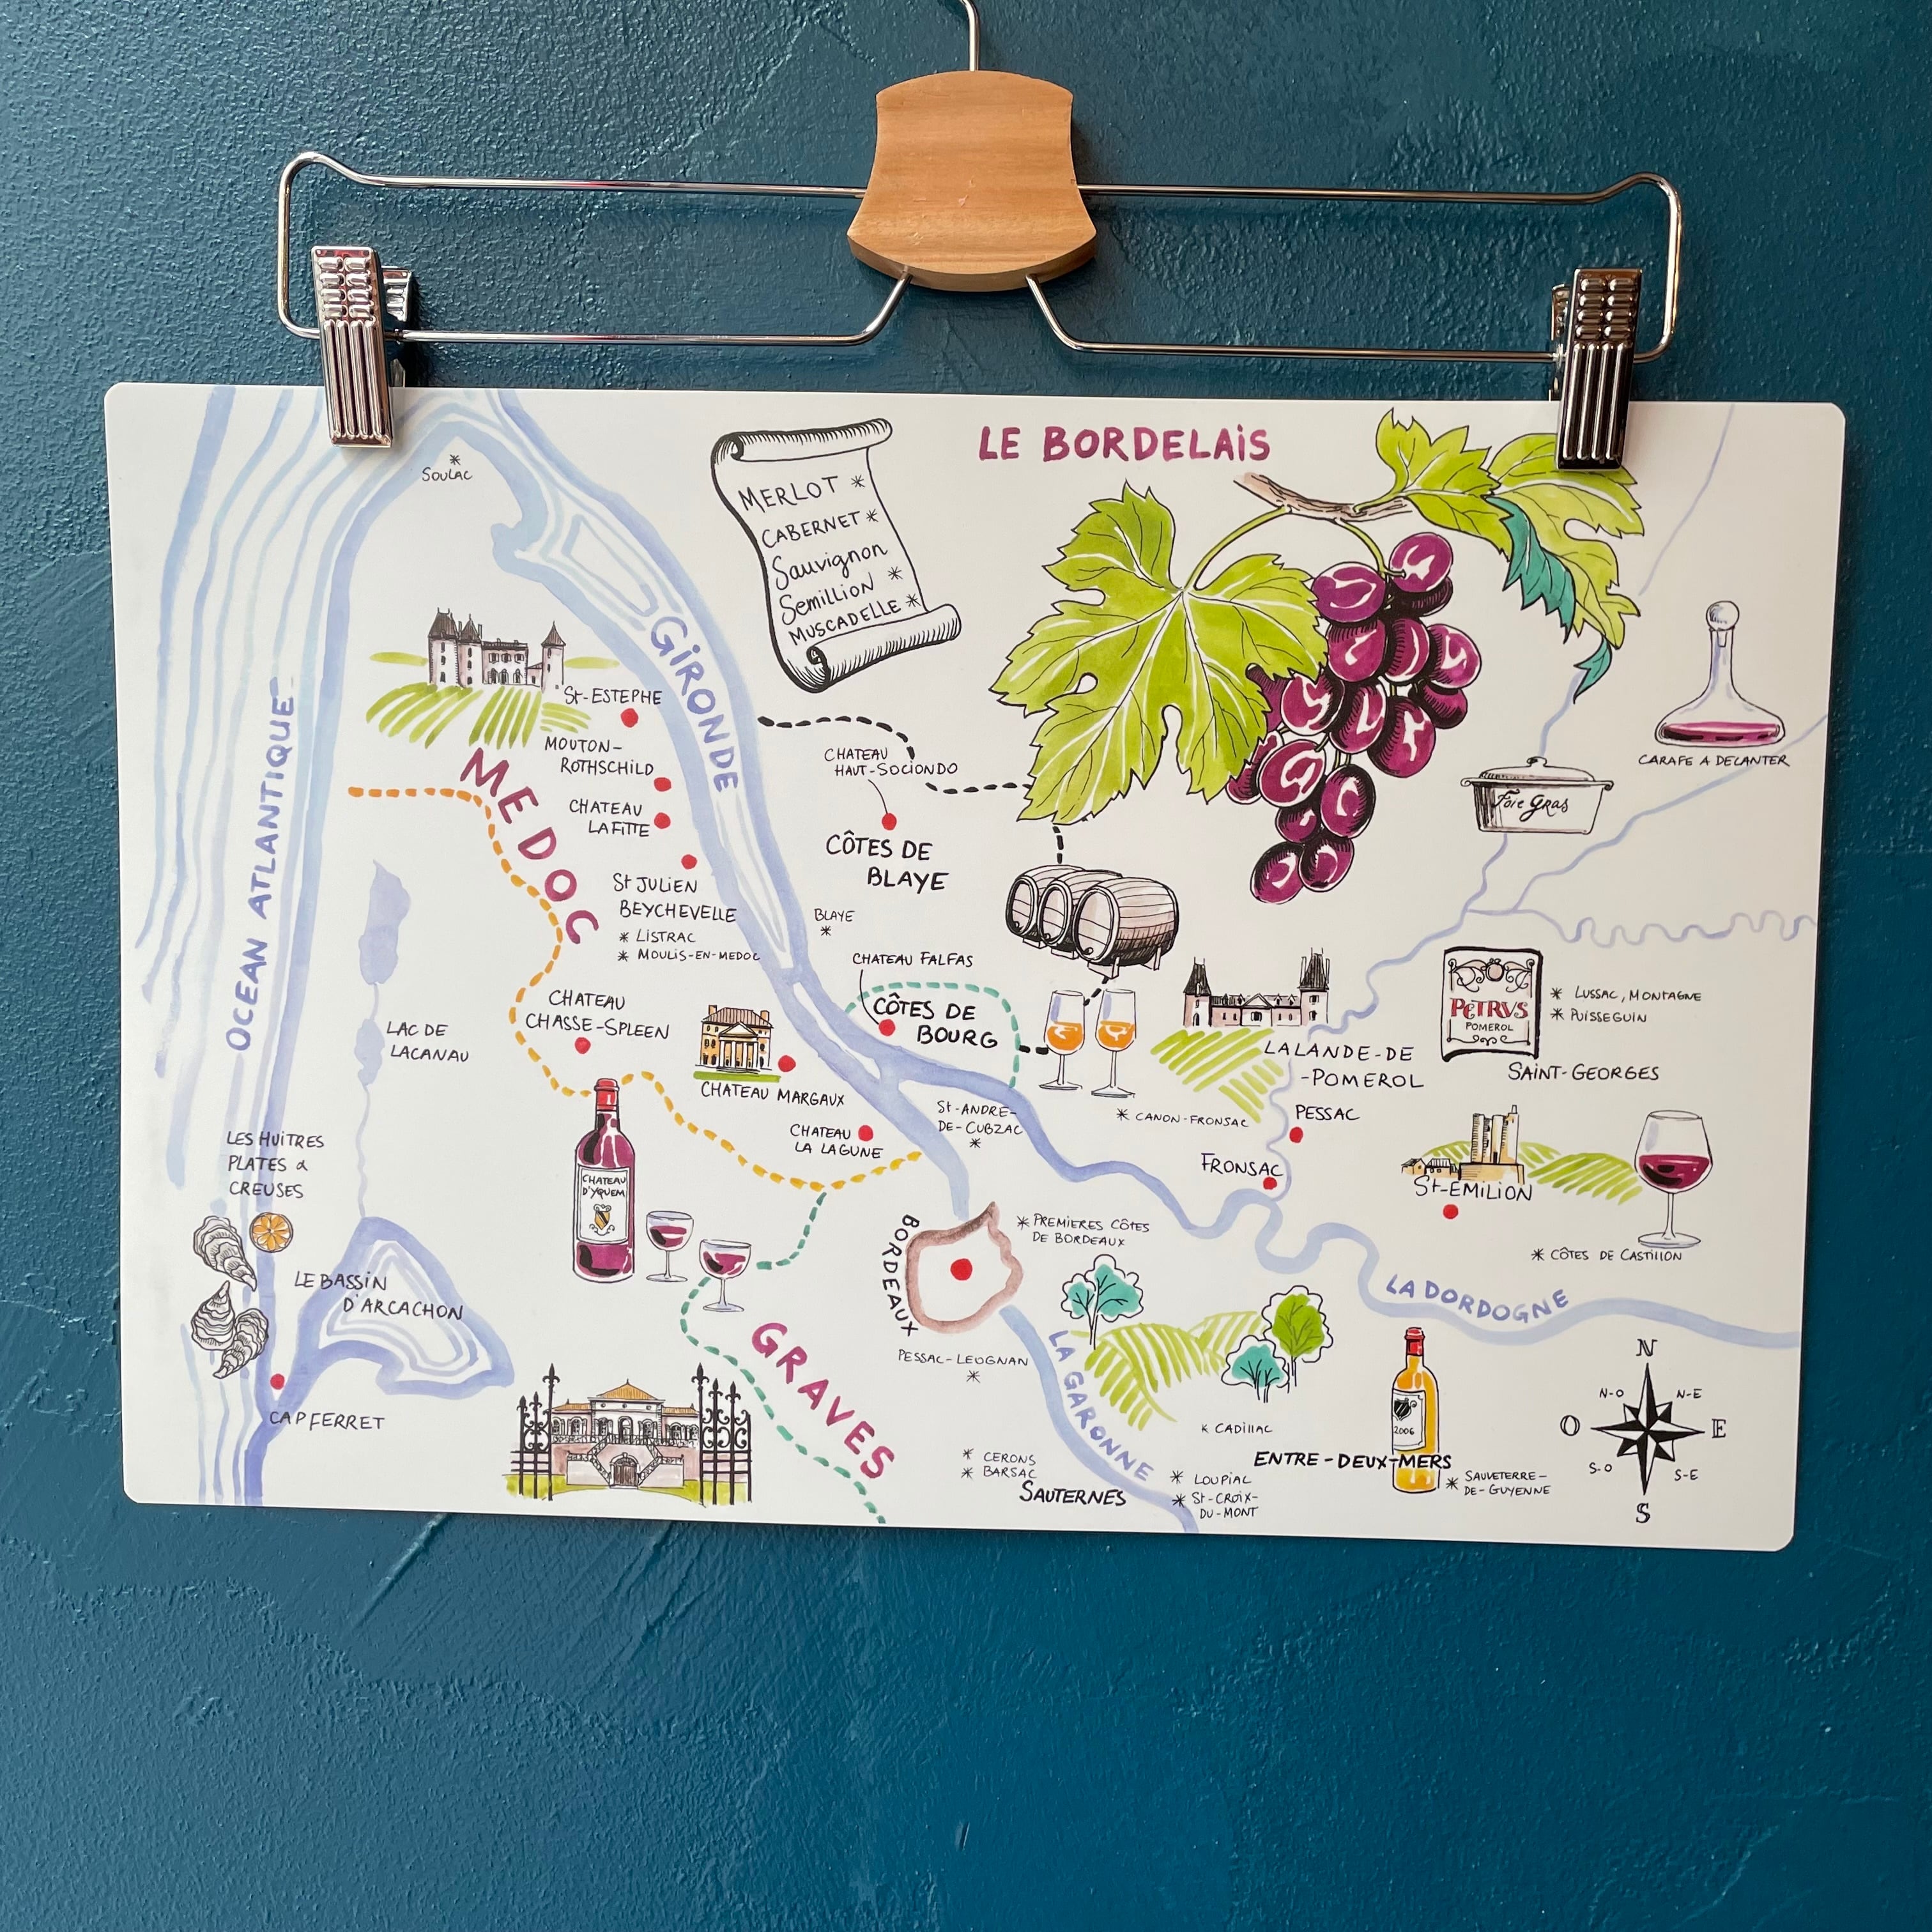 LE BORDELAIS
MERLOT *
CABERNET *
Sauvignon
Semillion *
MUSCADELLE *
* SOULAC
GIRONDE
OCEAN ATLANTIQUE
MEDOC
St-ESTEPHE
MOUTON-
ROTHSCHILD
CHATEAU
LAFITTE
St JULIEN
BEYCHEVELLE
* LISTRAC
* MOULIS-EN-MEDOC
CHATEAU
HAUT-SOCIONDO
CÔTES DE
BLAYE
BLAYE
*
CHATEAU FALFAS
CÔTES DE
BOURG
CARAFE A DECANTER
Foie Gras
PETRVS
POMEROL
* LUSSAC, MONTAGNE
* PUISSEGUIN
SAINT-GEORGES
LALANDE-DE
-POMEROL
* CANON-FRONSAC
PESSAC
FRONSAC
St-EMILION
* CÔTES DE CASTILLON
LAC DE
LACANAU
CHATEAU
CHASSE-SPLEEN
CHATEAU MARGAUX
CHATEAU
LA LAGUNE
St-ANDRE-
DE-CUBZAC
*
LES HUITRES
PLATES &
CREUSES
CHATEAU
D'YQUEM
LE BASSIN
D'ARCACHON
CAP FERRET
BORDEAUX
* PREMIERES CÔTES
DE BORDEAUX
LA DORDOGNE
PESSAC-LEOGNAN
*
GRAVES
LA GARONNE
* CERONS
* BARSAC
SAUTERNES
* CADILLAC
ENTRE-DEUX-MERS
* LOUPIAC
* St-CROIX-
DU-MONT
2006
* SAUVETERRE-
DE-GUYENNE
N
N-O
N-E
O
E
S-O
S-E
S